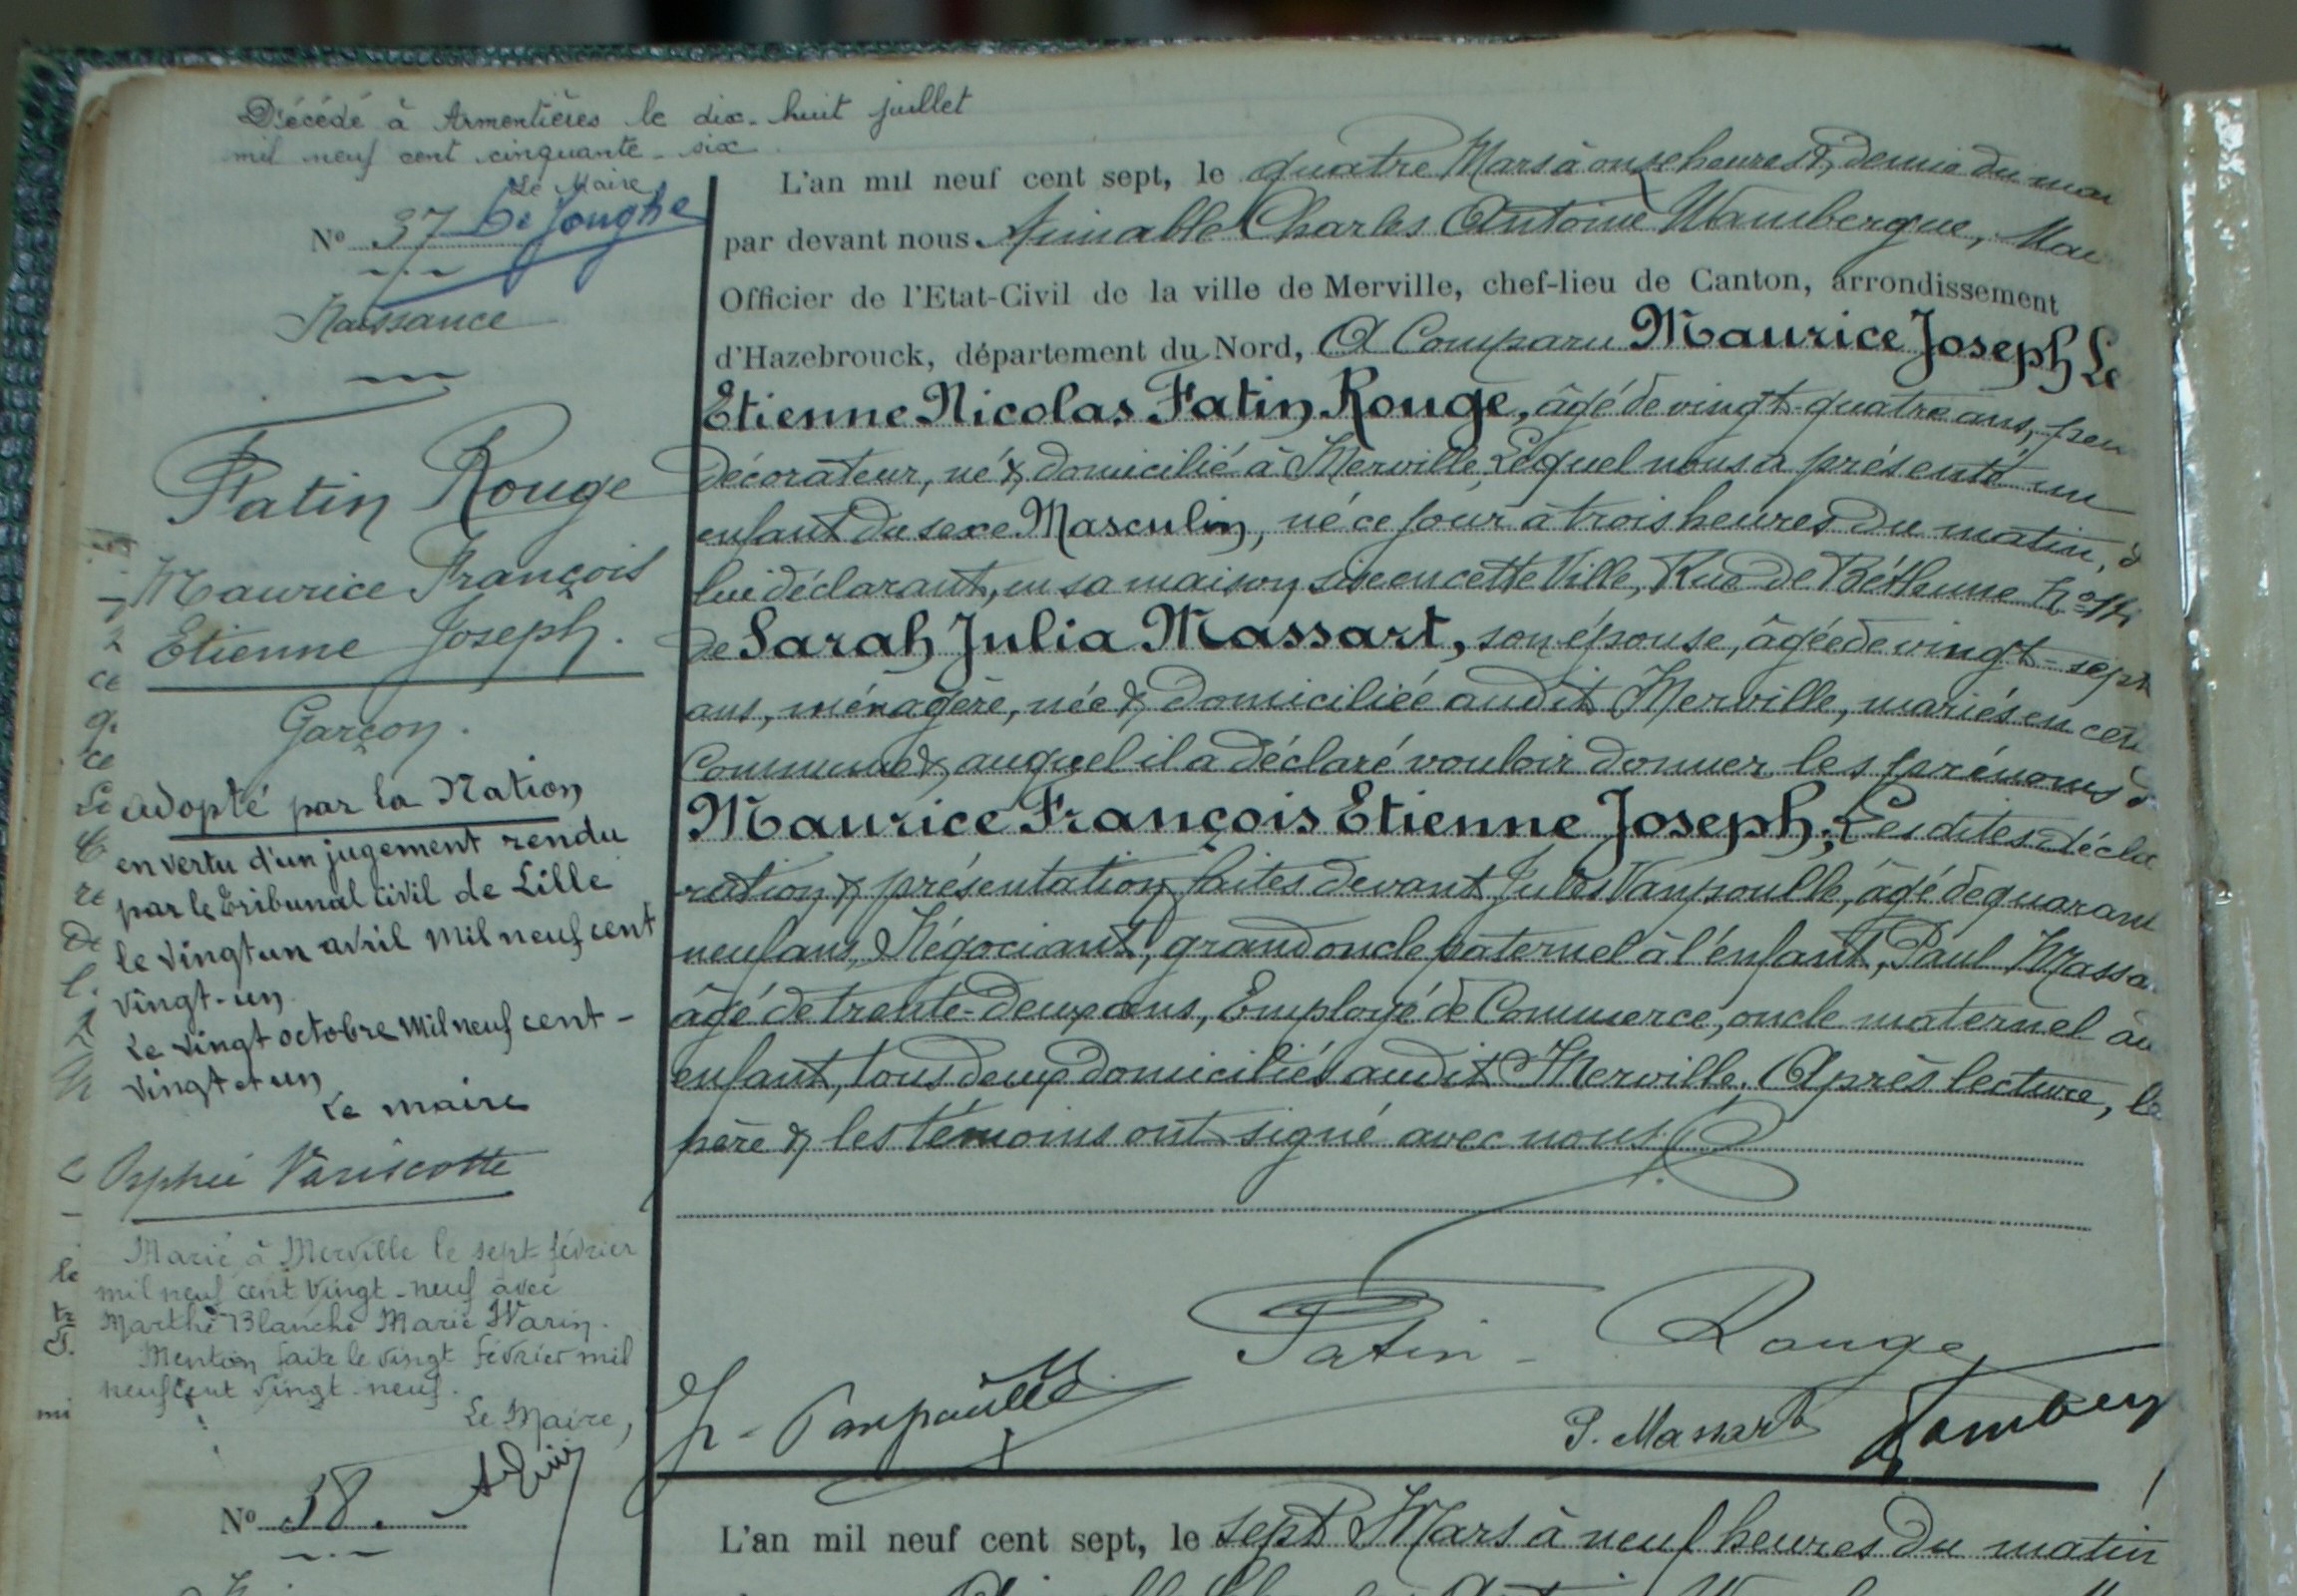 Décédé à Armentières le dix-huit juillet
mil neuf cent cinquante-six
Le Maire,
De Jonghe
Nº 37
Naissance
Patin Rouge
Maurice François
Etienne Joseph.
Garçon.
adopté par la Nation
en vertu d'un jugement rendu
par le Tribunal Civil de Lille
le vingt un avril mil neuf cent
vingt-un.
Le vingt octobre mil neuf cent-
vingt et un
Le maire
Orphée Variscotte
Marié à Merville le sept février
mil neuf cent vingt-neuf avec
Marthe Blanche Marie Warin.
Mention faite le vingt février mil
neuf cent vingt-neuf.
Le Maire,
Nº 38.
L'an mil neuf cent sept, le quatre Mars à onze heures & demie du
par devant nous Aimable Charles Antoine Wambergue,
Officier de l'Etat-Civil de la ville de Merville, chef-lieu de Canton, arrondissement
d'Hazebrouck, département du Nord, A Comparu Maurice Joseph
Etienne Nicolas Patin Rouge, âgé de vingt-quatre ans,
décorateur, né & domicilié à Merville, Lequel nous a présenté un
enfant du sexe Masculin, né ce jour à trois heures du matin, d
lui déclarant, en sa maison sise en cette Ville, Rue de Béthune Nº
de Sarah Julia Massart, son épouse, âgée de vingt-sept
ans, ménagère, née & domiciliée audit Merville, mariés en cett
Commune & auquel il a déclaré vouloir donner les prénoms d
Maurice François Etienne Joseph; Lesdites décla
ration & présentation faites devant Jules Vanpoulle, âgé de quarant
neuf ans, Négociant, grand oncle paternel à l'enfant, Paul Massa
âgé de trente-deux ans, Employé de Commerce, oncle maternel au
enfant, tous deux domiciliés audit Merville. Après lecture, le
père & les témoins ont signé avec nous.
Patin-Rouge
J. Vanpoulle
P. Massart
L'an mil neuf cent sept, le sept Mars à neuf heures du matin